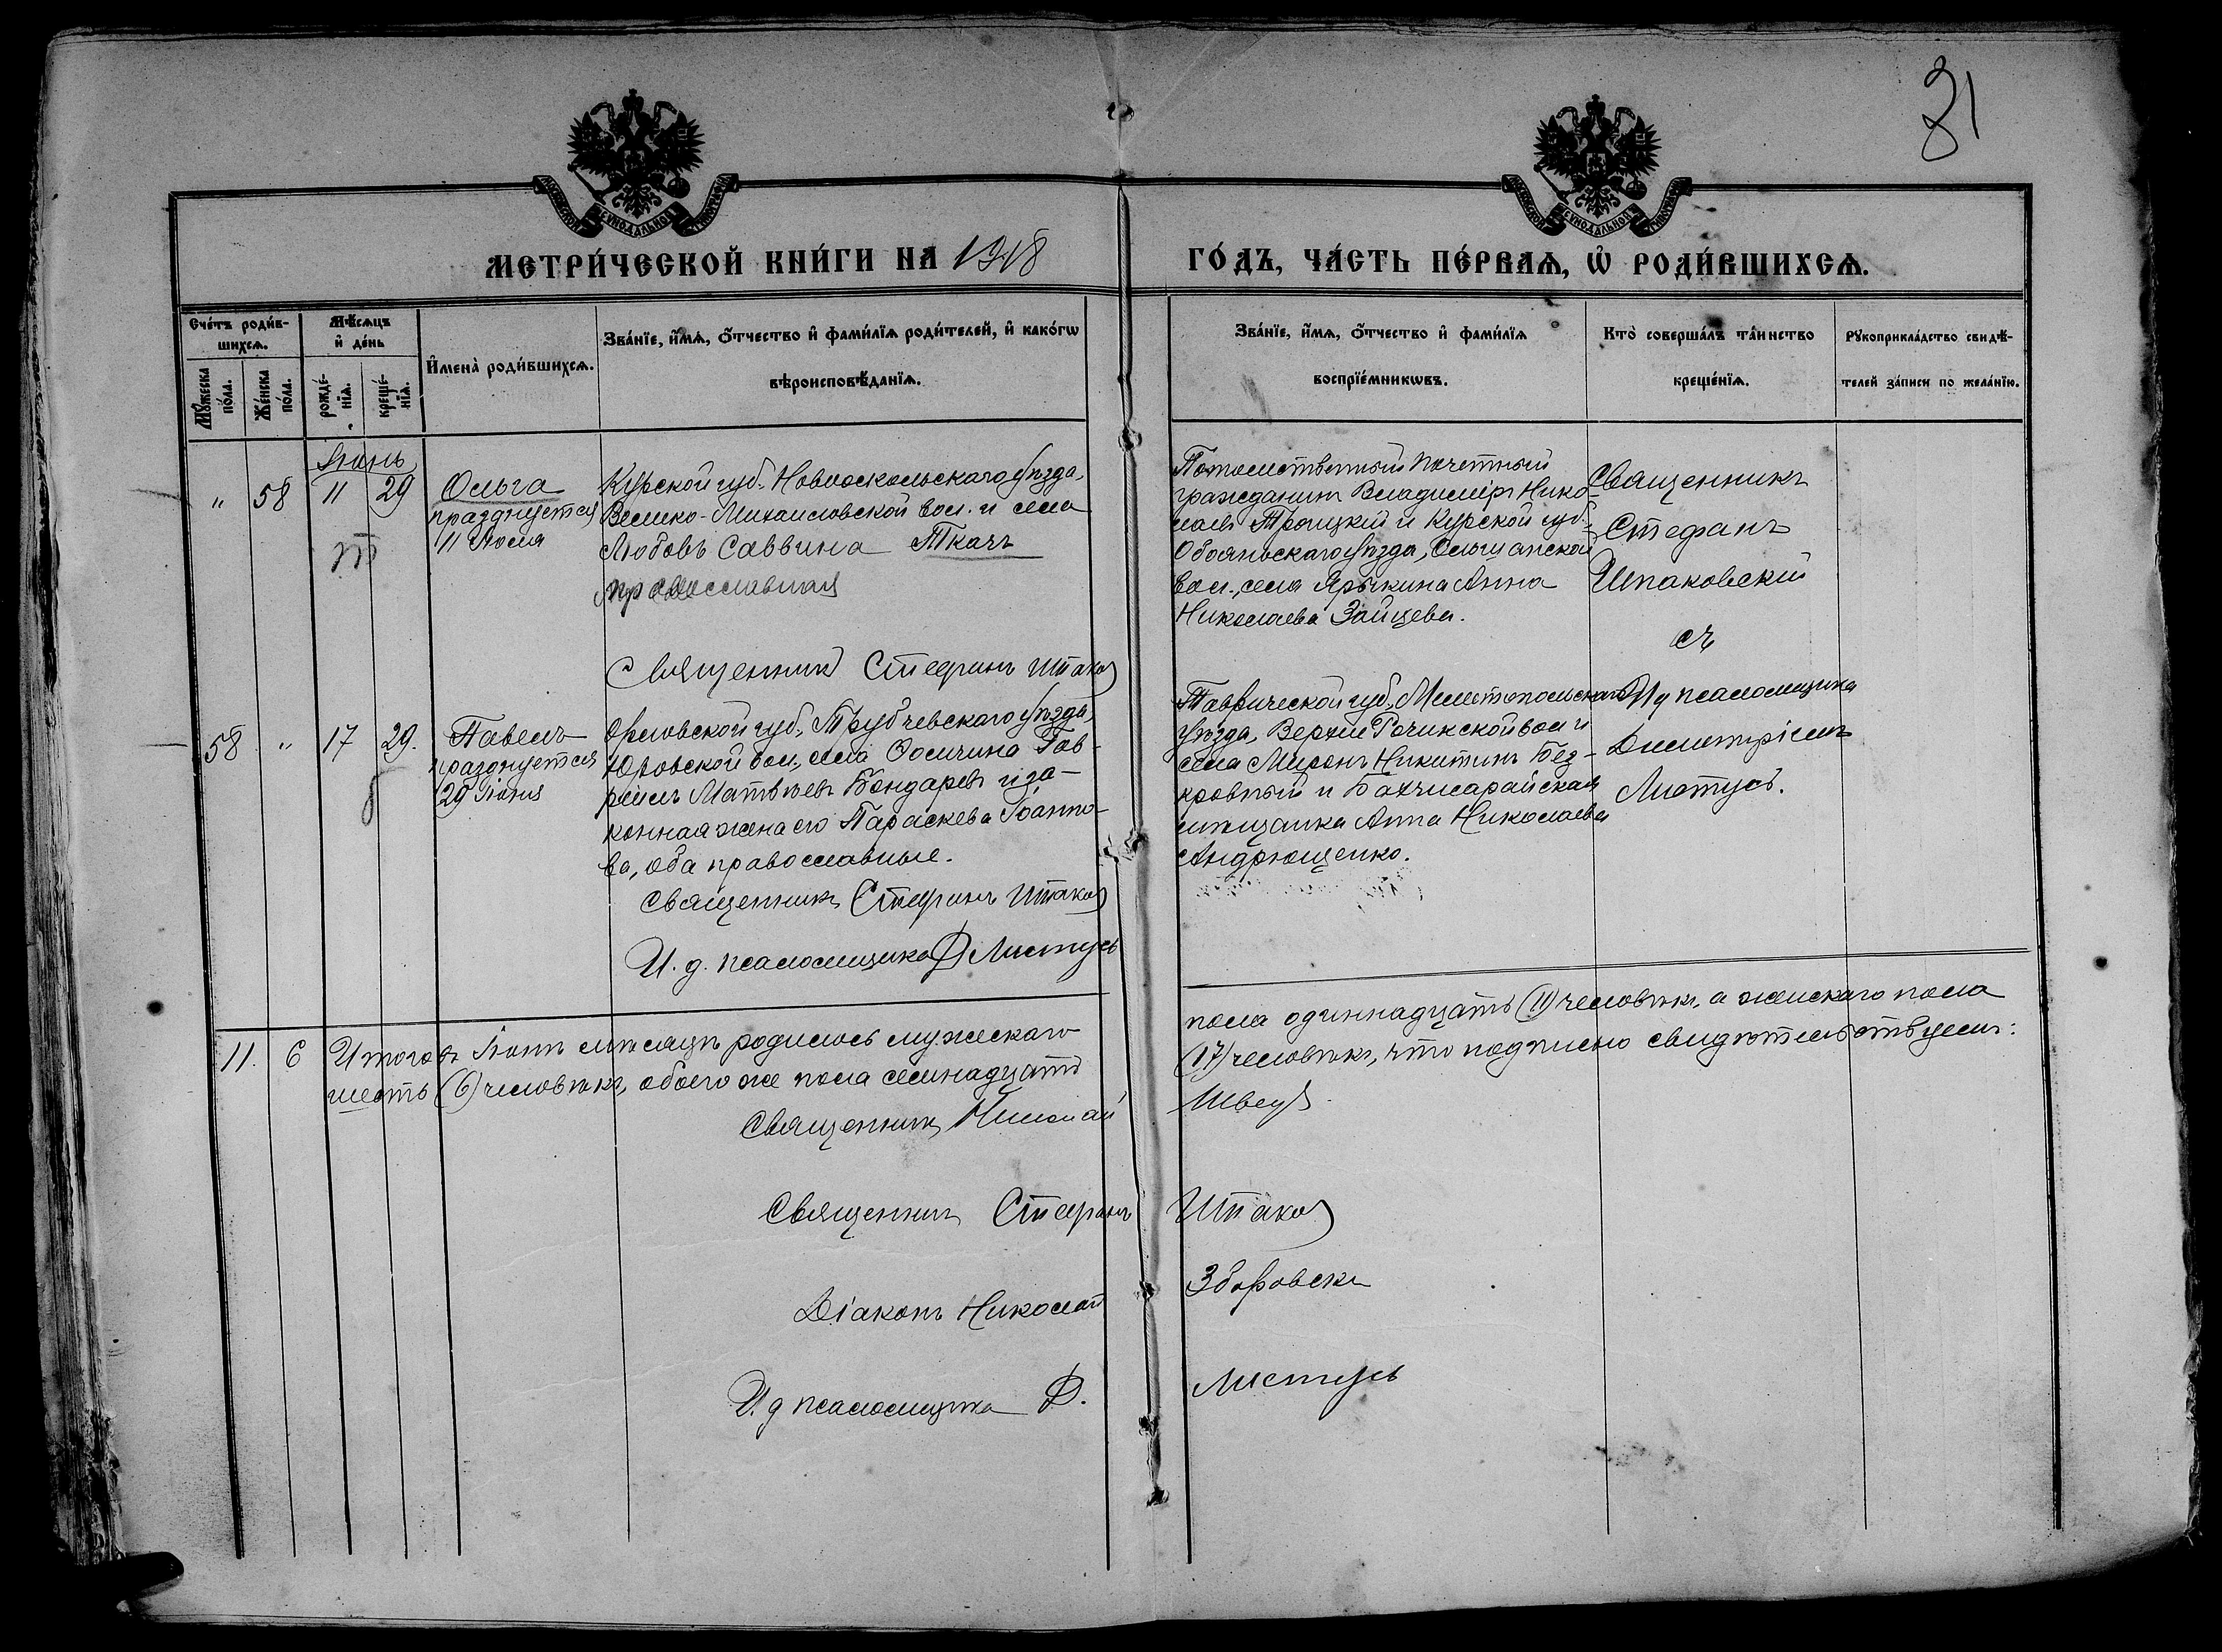 31
МОСКОВСКОЙ СѴНОДАЛЬНОЙ ТИПОГРАФІИ
МОСКОВСКОЙ СѴНОДАЛЬНОЙ ТИПОГРАФІИ
МЕТРИ́ЧЕСКОЙ КНИ́ГИ НА 1918
ГО́ДЪ, ЧА́СТЬ ПЕ́РВАѦ, Ѽ РОДИ́ВШИХСѦ.
Сче́тъ роди́в-
шихсѧ.
Мѣ́сѧцъ
и҆ де́нь
Мꙋ́жеска
по́ла.
Же́нска
по́ла.
рожде́-
нїѧ.
креще́-
нїѧ.
И҆мена̀ роди́вшихсѧ.
Зва́нїе, и҆́мѧ, ѻ҆́тчество и҆ фами́лїѧ роди́телей, и҆ како́гѡ
вѣроисповѣ́данїѧ.
Зва́нїе, и҆́мѧ, ѻ҆́тчество и҆ фами́лїѧ
воспрїе́мникѡвъ.
Кто̀ соверша́лъ та́инство
креще́нїѧ.
Рꙋкоприкла́дство свидѣ́-
телей за́писи по жела́нїю.
Іюнь
" 58 11 29
Ольга
празднуется
11 Іюля
Курской губ. Новооскольскаго уѣзда,
Велико-Михайловской вол. и села
Любовь Саввина Ткачъ
православная
Священникъ Стефанъ Шпаков
Потомственный почетный
гражданинъ Владиміръ Нико-
лаевъ Троицкій и Курской губ.,
Обоянскаго уѣзда, Ольшанской
вол., села Ярыкина Анна
Николаева Зайцева.
Священникъ
Стефанъ
Шпаковскій
съ
И д псаломщика
Димитріемъ
Листусъ.
58 " 17 29.
Павелъ
празднуется
29 Іюня
Орловской губ., Трубчевскаго уѣзда,
Юровской вол., села Гав-
ріилъ Матѳіевъ Бондаревъ и за-
конная жена его Параскева Іоанно-
ва, оба православные.
Священникъ Стефанъ Шпаков
И. д. псаломщика Д Листусъ
Таврической губ., Мелитопольскаго
уѣзда, Верхне Рогачикской вол и
села Миронъ Никитинъ Без-
кровный и Бахчисарайская
мѣщанка Анна Николаева
Андрющенко.
11. 6 Итого въ Іюнѣ мѣсяцѣ родилось мужескаго
пола одиннадцать (11) человѣкъ, а женскаго пола
шесть (6) человѣкъ, обоего же пола семнадцать
(17) человѣкъ, что подписью свидѣтельствуемъ:
Священникъ Николай Швецъ
Священникъ Стефанъ Шпаков
Діаконъ Николай Зборовскі
И. д псаломщика Д. Листусъ